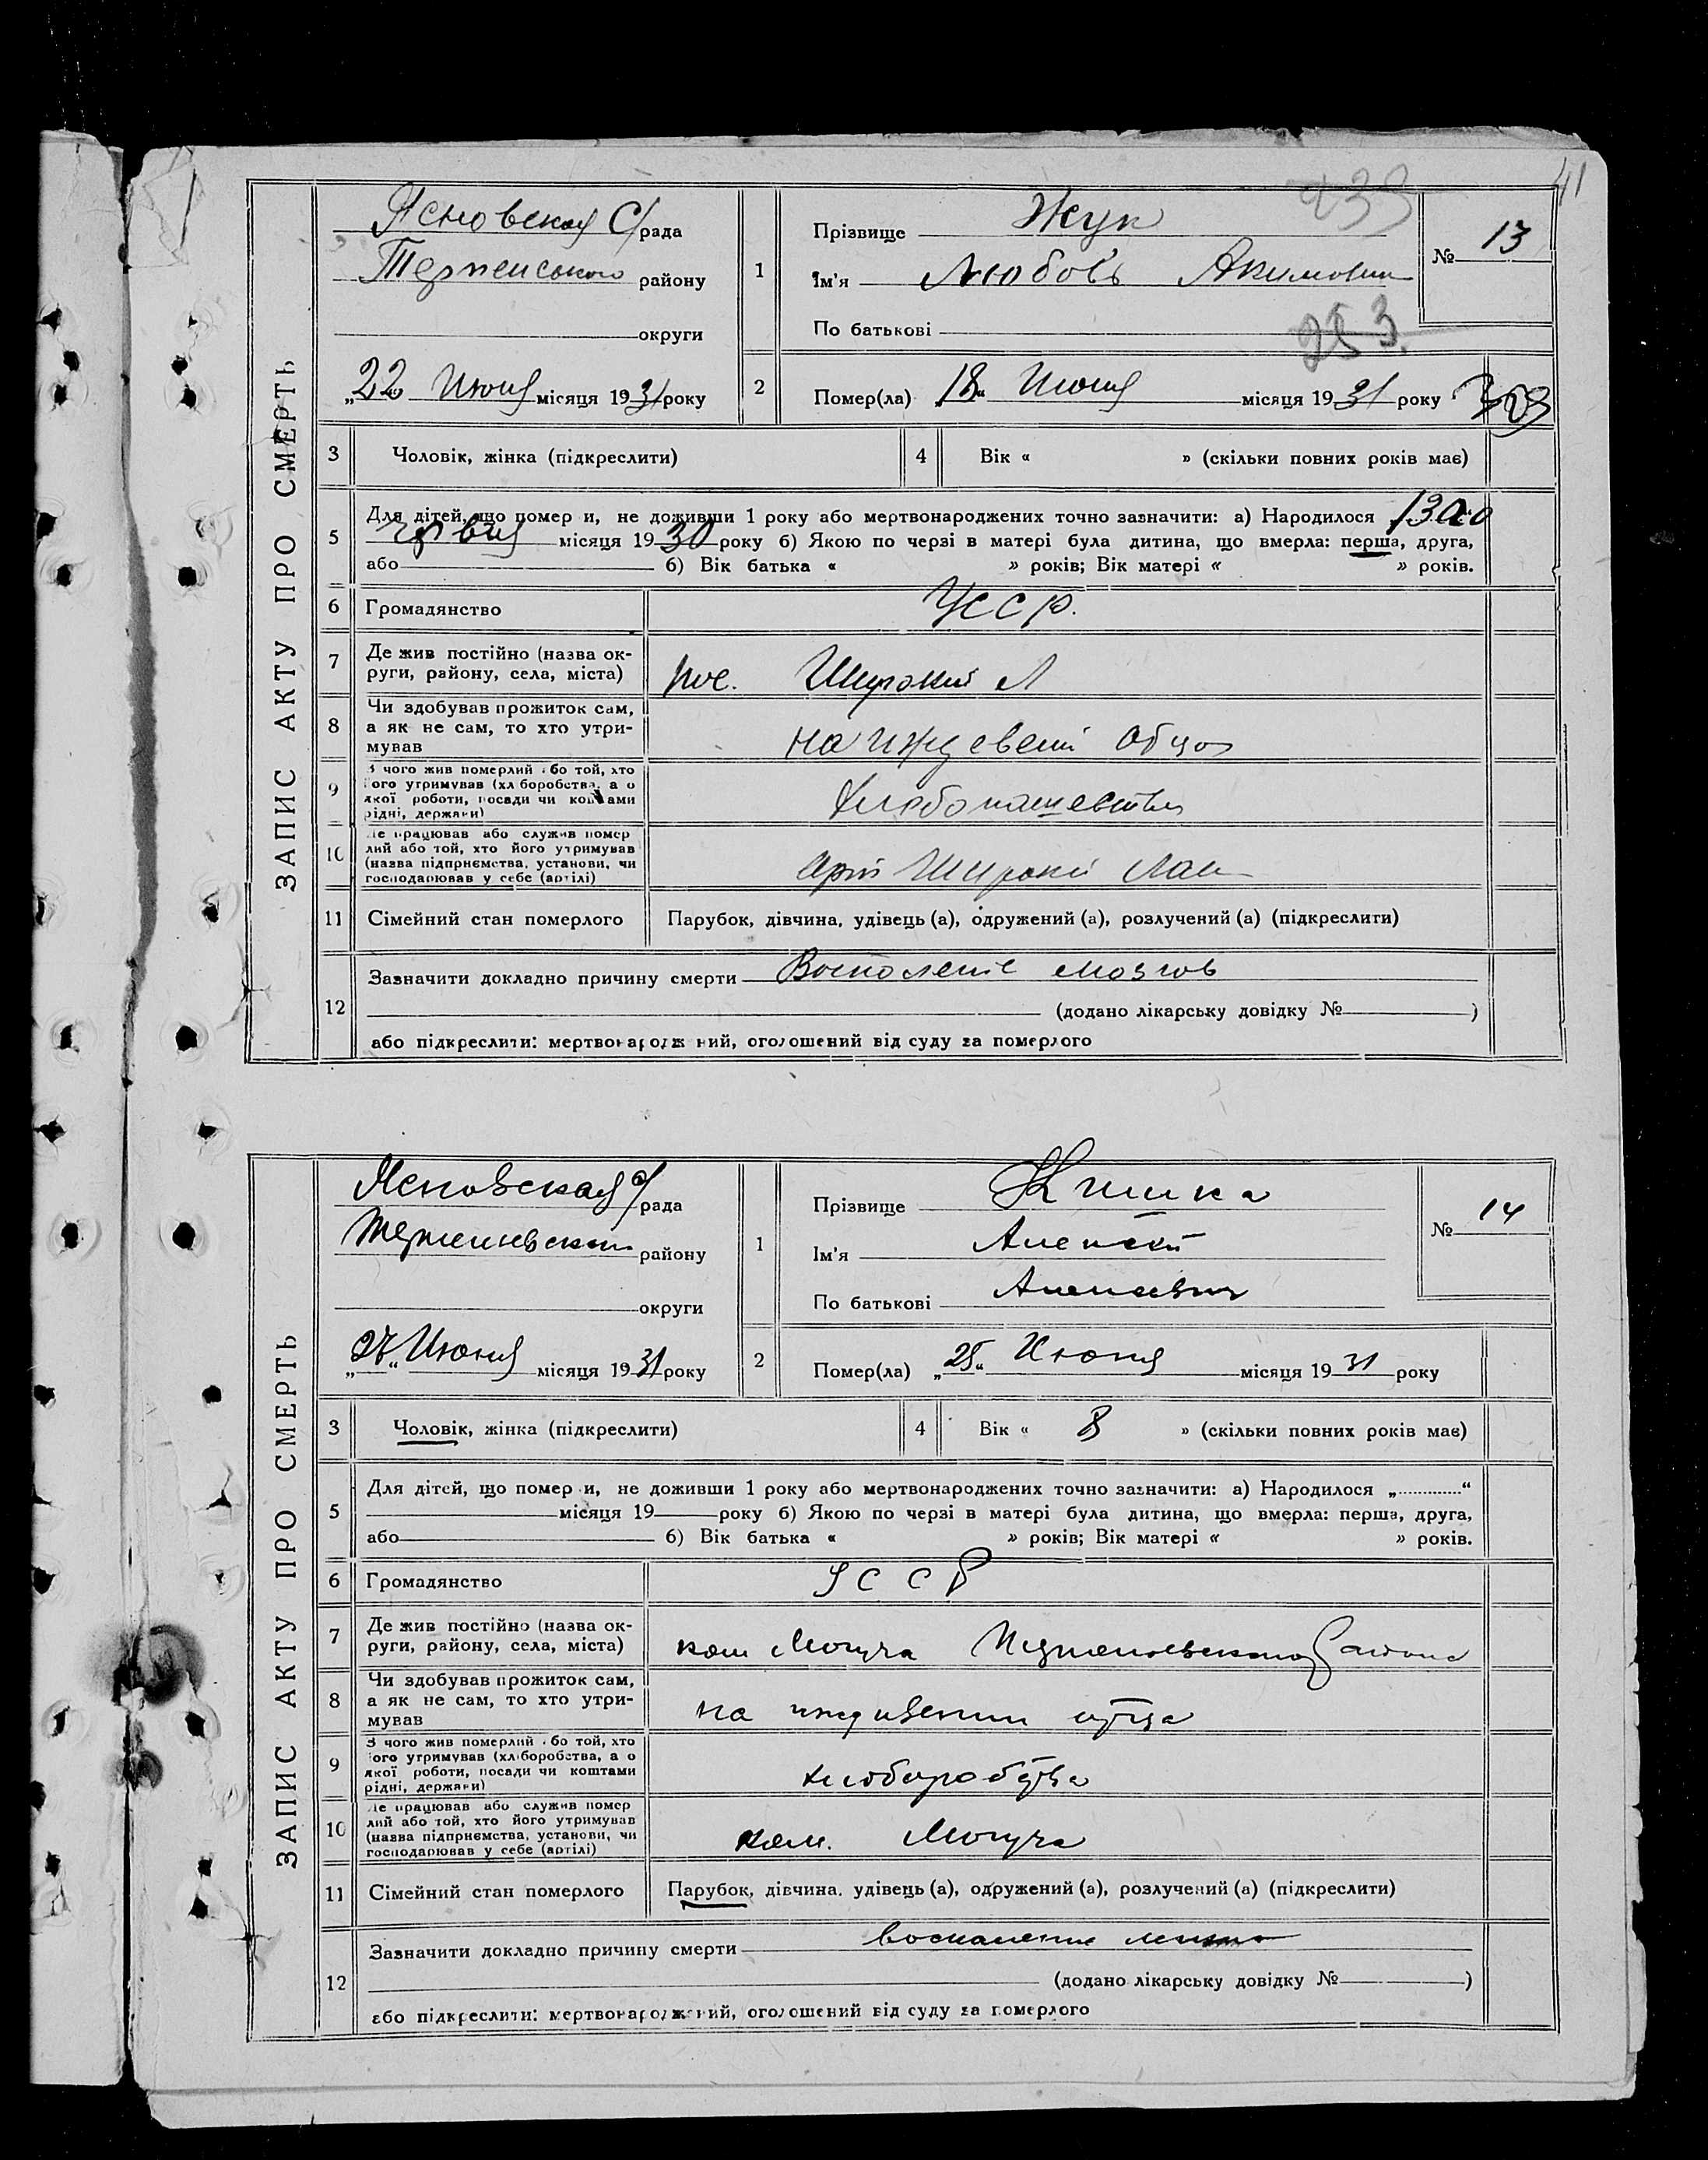 41
ЗАПИС АКТУ ПРО СМЕРТЬ
Ясновская С/рада
район у
округи
„22 Июня місяця 1931 року
1
Прізвище Жук
Ім'я Любовь Акимовн
По батькові
№ 13
253.
2
Помер(ла) „18“ Июня місяця 1931 року
3
Чоловік, жінка (підкреслити)
4
Вік « » (скільки повних років має)
5
Для дітей, що помер и, не доживши 1 року або мертвонароджених точно зазначити: а) Народилося
місяця 1930 року б) Якою по черзі в матері була дитина, що вмерла: перша, друга,
або б) Вік батька « » років; Вік матері « » років.
6
Громадянство
УССР.
7
Де жив постійно (назва ок-
руги, району, села, міста)
пос. Широкий Л
8
Чи здобував прожиток сам,
а як не сам, то хто утри-
мував
на иждевении отца
9
З чого жив померлий або той, хто
його утримував (хліборобства, а о
якої роботи, посади чи коштами
рідні, держави)
Хлебопашества
10
Де працював або служив помер
лий або той, хто його утримував
(назва підприємства, установи, чи
господарював у себе (артілі)
Арт Широкий Лан
11
Сімейний стан померлого
Парубок, дівчина, удівець (а), одружений (а), розлучений (а) (підкреслити)
12
Зазначити докладно причину смерти Воспаление мозгов
(додано лікарську довідку № )
або підкреслити: мертвонародж ний, оголошений від суду за померлого
ЗАПИС АКТУ ПРО СМЕРТЬ
Ясновская с/рада
району
округи
„27“ Июня місяця 1931 року
1
Прізвище Кишка
Ім'я Алексей
По батькові Алексеевич
№ 14
2
Помер(ла) „25“ Июня місяця 1931 року
3
Чоловік, жінка (підкреслити)
4
Вік « 8 » (скільки повних років має)
5
Для дітей, що помер и, не доживши 1 року або мертвонароджених точно зазначити: а) Народилося „.............“
місяця 19 року б) Якою по черзі в матері була дитина, що вмерла: перша, друга,
або б) Вік батька « » років; Вік матері « » років.
6
Громадянство
УССР
7
Де жив постійно (назва ок-
руги, району, села, міста)
ком Могуча района
8
Чи здобував прожиток сам,
а як не сам, то хто утри-
мував
на иждивении отца
9
З чого жив померлий або той, хто
його утримував (хліборобства, а о
якої роботи, посади чи коштами
рідні, держави)
хлиборобства
10
Де працював або служив помер
лий або той, хто його утримував
(назва підприємства, установи, чи
господарював у себе (артілі)
ком. Могуча
11
Сімейний стан померлого
Парубок, дівчина, удівець (а), одружений (а), розлучений (а) (підкреслити)
12
Зазначити докладно причину смерти воспаление
(додано лікарську довідку № )
або підкреслити: мертвонароджений, оголошений від суду за померлого